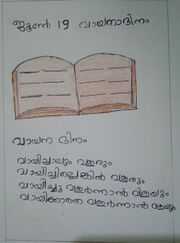 ജൂൺ 19 വായനാദിനം
വായന ദിനം
വായിച്ചാലും വളരും
വായിച്ചില്ലെങ്കിൽ വളരും
വായിച്ചു വളർന്നാൽ വിളയും
വായിക്കാതെ വളർന്നാൽ വളയും